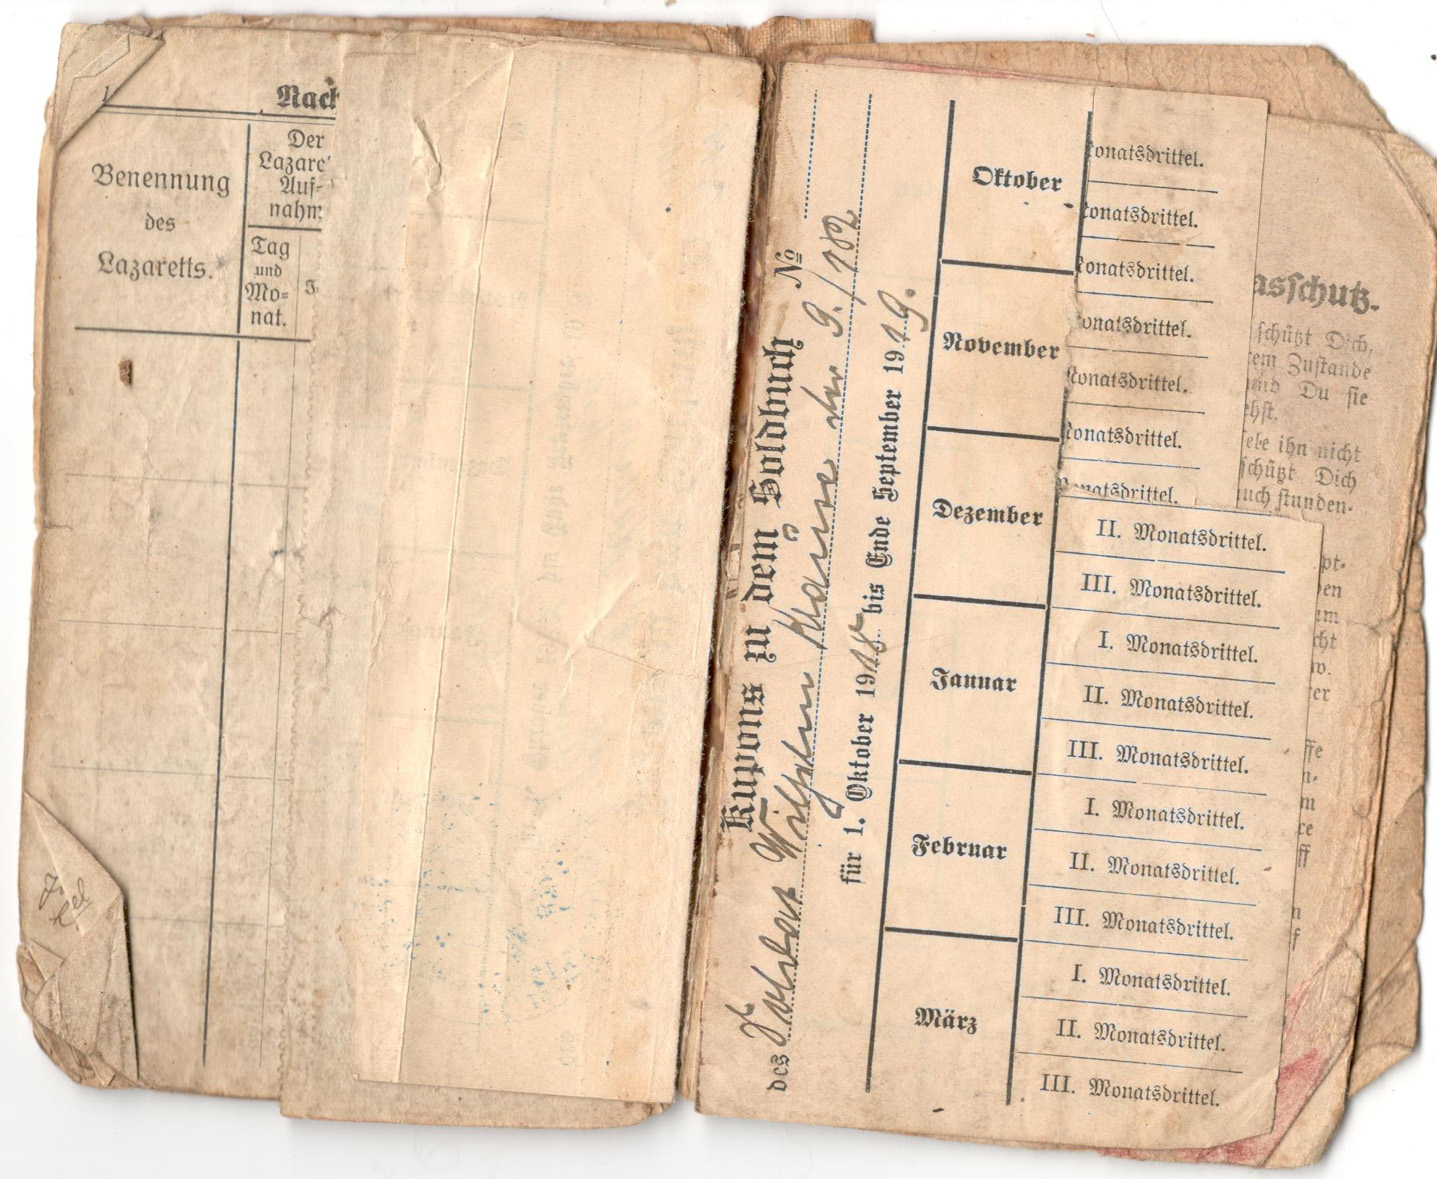 Benennung
des
Lazaretts.
Der
Auf-
nahm
Tag
und
Mo-
nat.
Kupons zu dem Soldbuch №
des Soldat Wilhelm der 9./182
für 1. Oktober 1918 bis Ende September 1919.
Oktober
November
Dezember
Januar
Februar
März
onatsdrittel.
onatsdrittel.
onatsdrittel.
onatsdrittel.
onatsdrittel.
onatsdrittel.
onatsdrittel.
II. Monatsdrittel.
III. Monatsdrittel.
I. Monatsdrittel.
II. Monatsdrittel.
III. Monatsdrittel.
I. Monatsdrittel.
II. Monatsdrittel.
III. Monatsdrittel.
I. Monatsdrittel.
II. Monatsdrittel.
III. Monatsdrittel.
asschutz.
schützt Dich,
em Zustande
und Du sie
ehst.
ebe ihn nicht
schützt Dich
uch stunden-